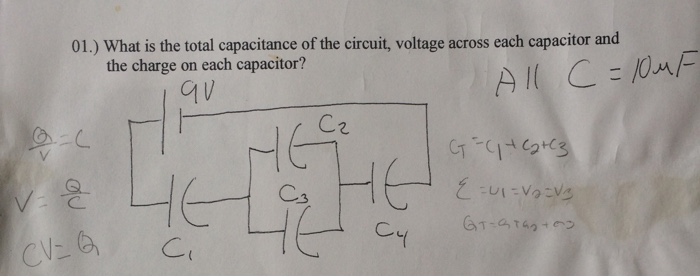 01.) What is the total capacitance of the circuit, voltage across each capacitor and
the charge on each capacitor?
All C = 10μF
9V
C2
Q/V = C
CT = C1 + C2 + C3
V = Q/C
C3
Ɛ = V1 = V2 = V3
C1
C4
CV = Q